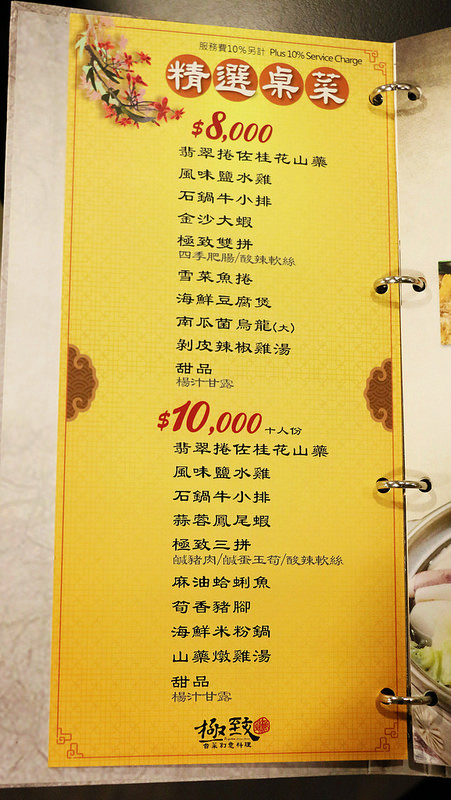 服務費10%另計 Plus 10% Service Charge
精選桌菜
$8,000
翡翠捲佐桂花山藥
風味鹽水雞
石鍋牛小排
金沙大蝦
極致雙拼
四季肥腸/酸辣軟絲
雪菜魚捲
海鮮豆腐煲
南瓜菌烏龍(大)
剝皮辣椒雞湯
甜品
楊汁甘露
$10,000 十人份
翡翠捲佐桂花山藥
風味鹽水雞
石鍋牛小排
蒜蓉鳳尾蝦
極致三拼
鹹豬肉/鹹蛋玉筍/酸辣軟絲
麻油蛤蜊魚
筍香豬腳
海鮮米粉鍋
山藥燉雞湯
甜品
楊汁甘露
極致
台菜創意料理